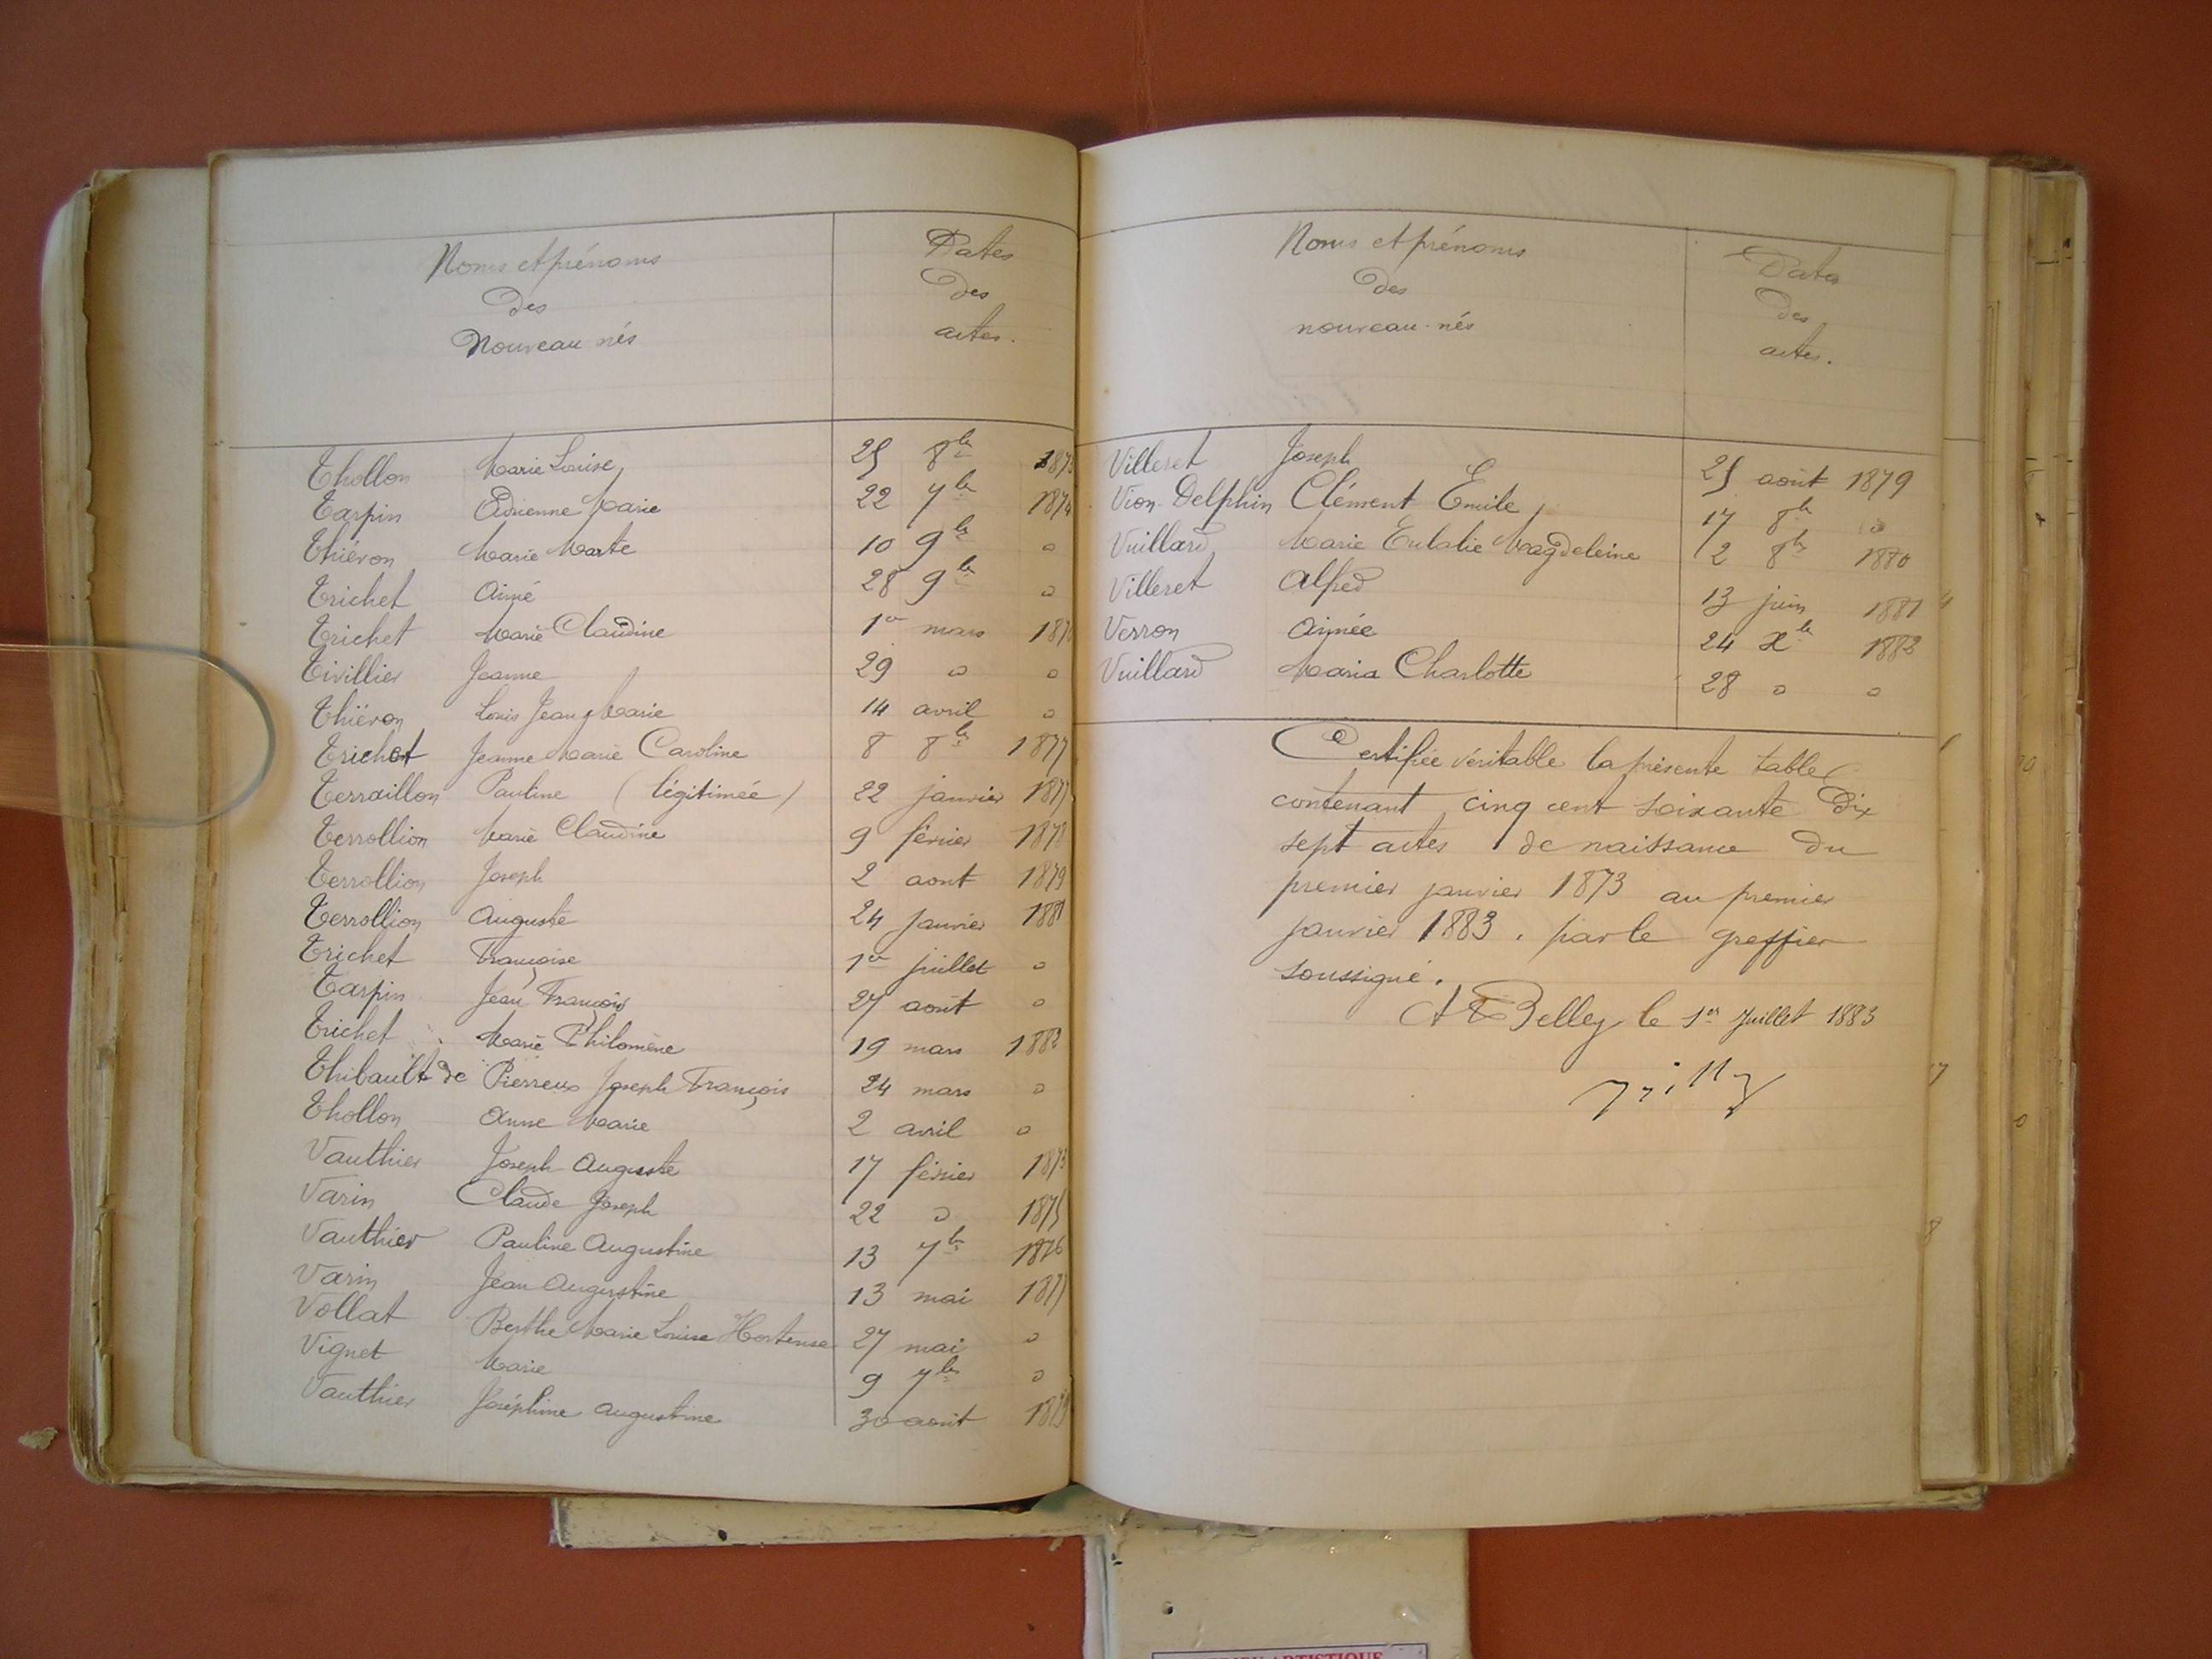 Noms et prénoms
des
Nouveau nés
Dates
des
actes.
Thollon Marie Louise 25 8bre 187
Tarpin Adrienne Marie 22 7bre 1874
Thiévon Marie Marte 10 9bre "
Trichet Aimé 28 9bre "
Trichet Marie Claudine 1er mars 187
Tivillier Jeanne 29 " "
Thiévon Louis Jean Marie 14 avril "
Trichet Jeanne Marie Caroline 8 8bre 1877
Terraillon Pauline (légitimée) 22 janvier 1877
Terrollion Marie Claudine 9 février 1878
Terrollion Joseph 2 aout 1879
Terrollion Auguste 24 janvier 1881
Trichet Françoise 1er juillet "
Tarpin Jean François 27 août "
Trichet Marie Philomène 19 mars 1882
Thibault de Pierreux Joseph François 24 mars "
Thollon Anne Marie 2 avril "
Vauthier Joseph Auguste 17 février 1873
Varin Claude Joseph 22 " 1875
Vauthier Pauline Augustine 13 7bre 1876
Varin Jean Augustine 13 mai 1877
Vollat Berthe Marie Louise Hortense 27 mai "
Vignet Marie 9 7bre "
Vauthier Joséphine Augustine 30 août 18
Noms et prénoms
des
nouveau-nés
Dates
des
actes.
Villeret Joseph 25 août 1879
Vion-Delphin Clément Emile 17 8bre "
Vuillard Marie Eulalie Magdeleine 2 8bre 1880
Villeret Alfred 13 juin 1881
Verron Aimée 24 Xbre 1882
Vuillard Maria Charlotte 28 " "
Certifiée véritable la présente table
contenant cinq cent soixante dix
sept actes de naissance du
premier janvier 1873 au premier
janvier 1883. par le greffier
soussigné.
A Belley le 1er Juillet 1883